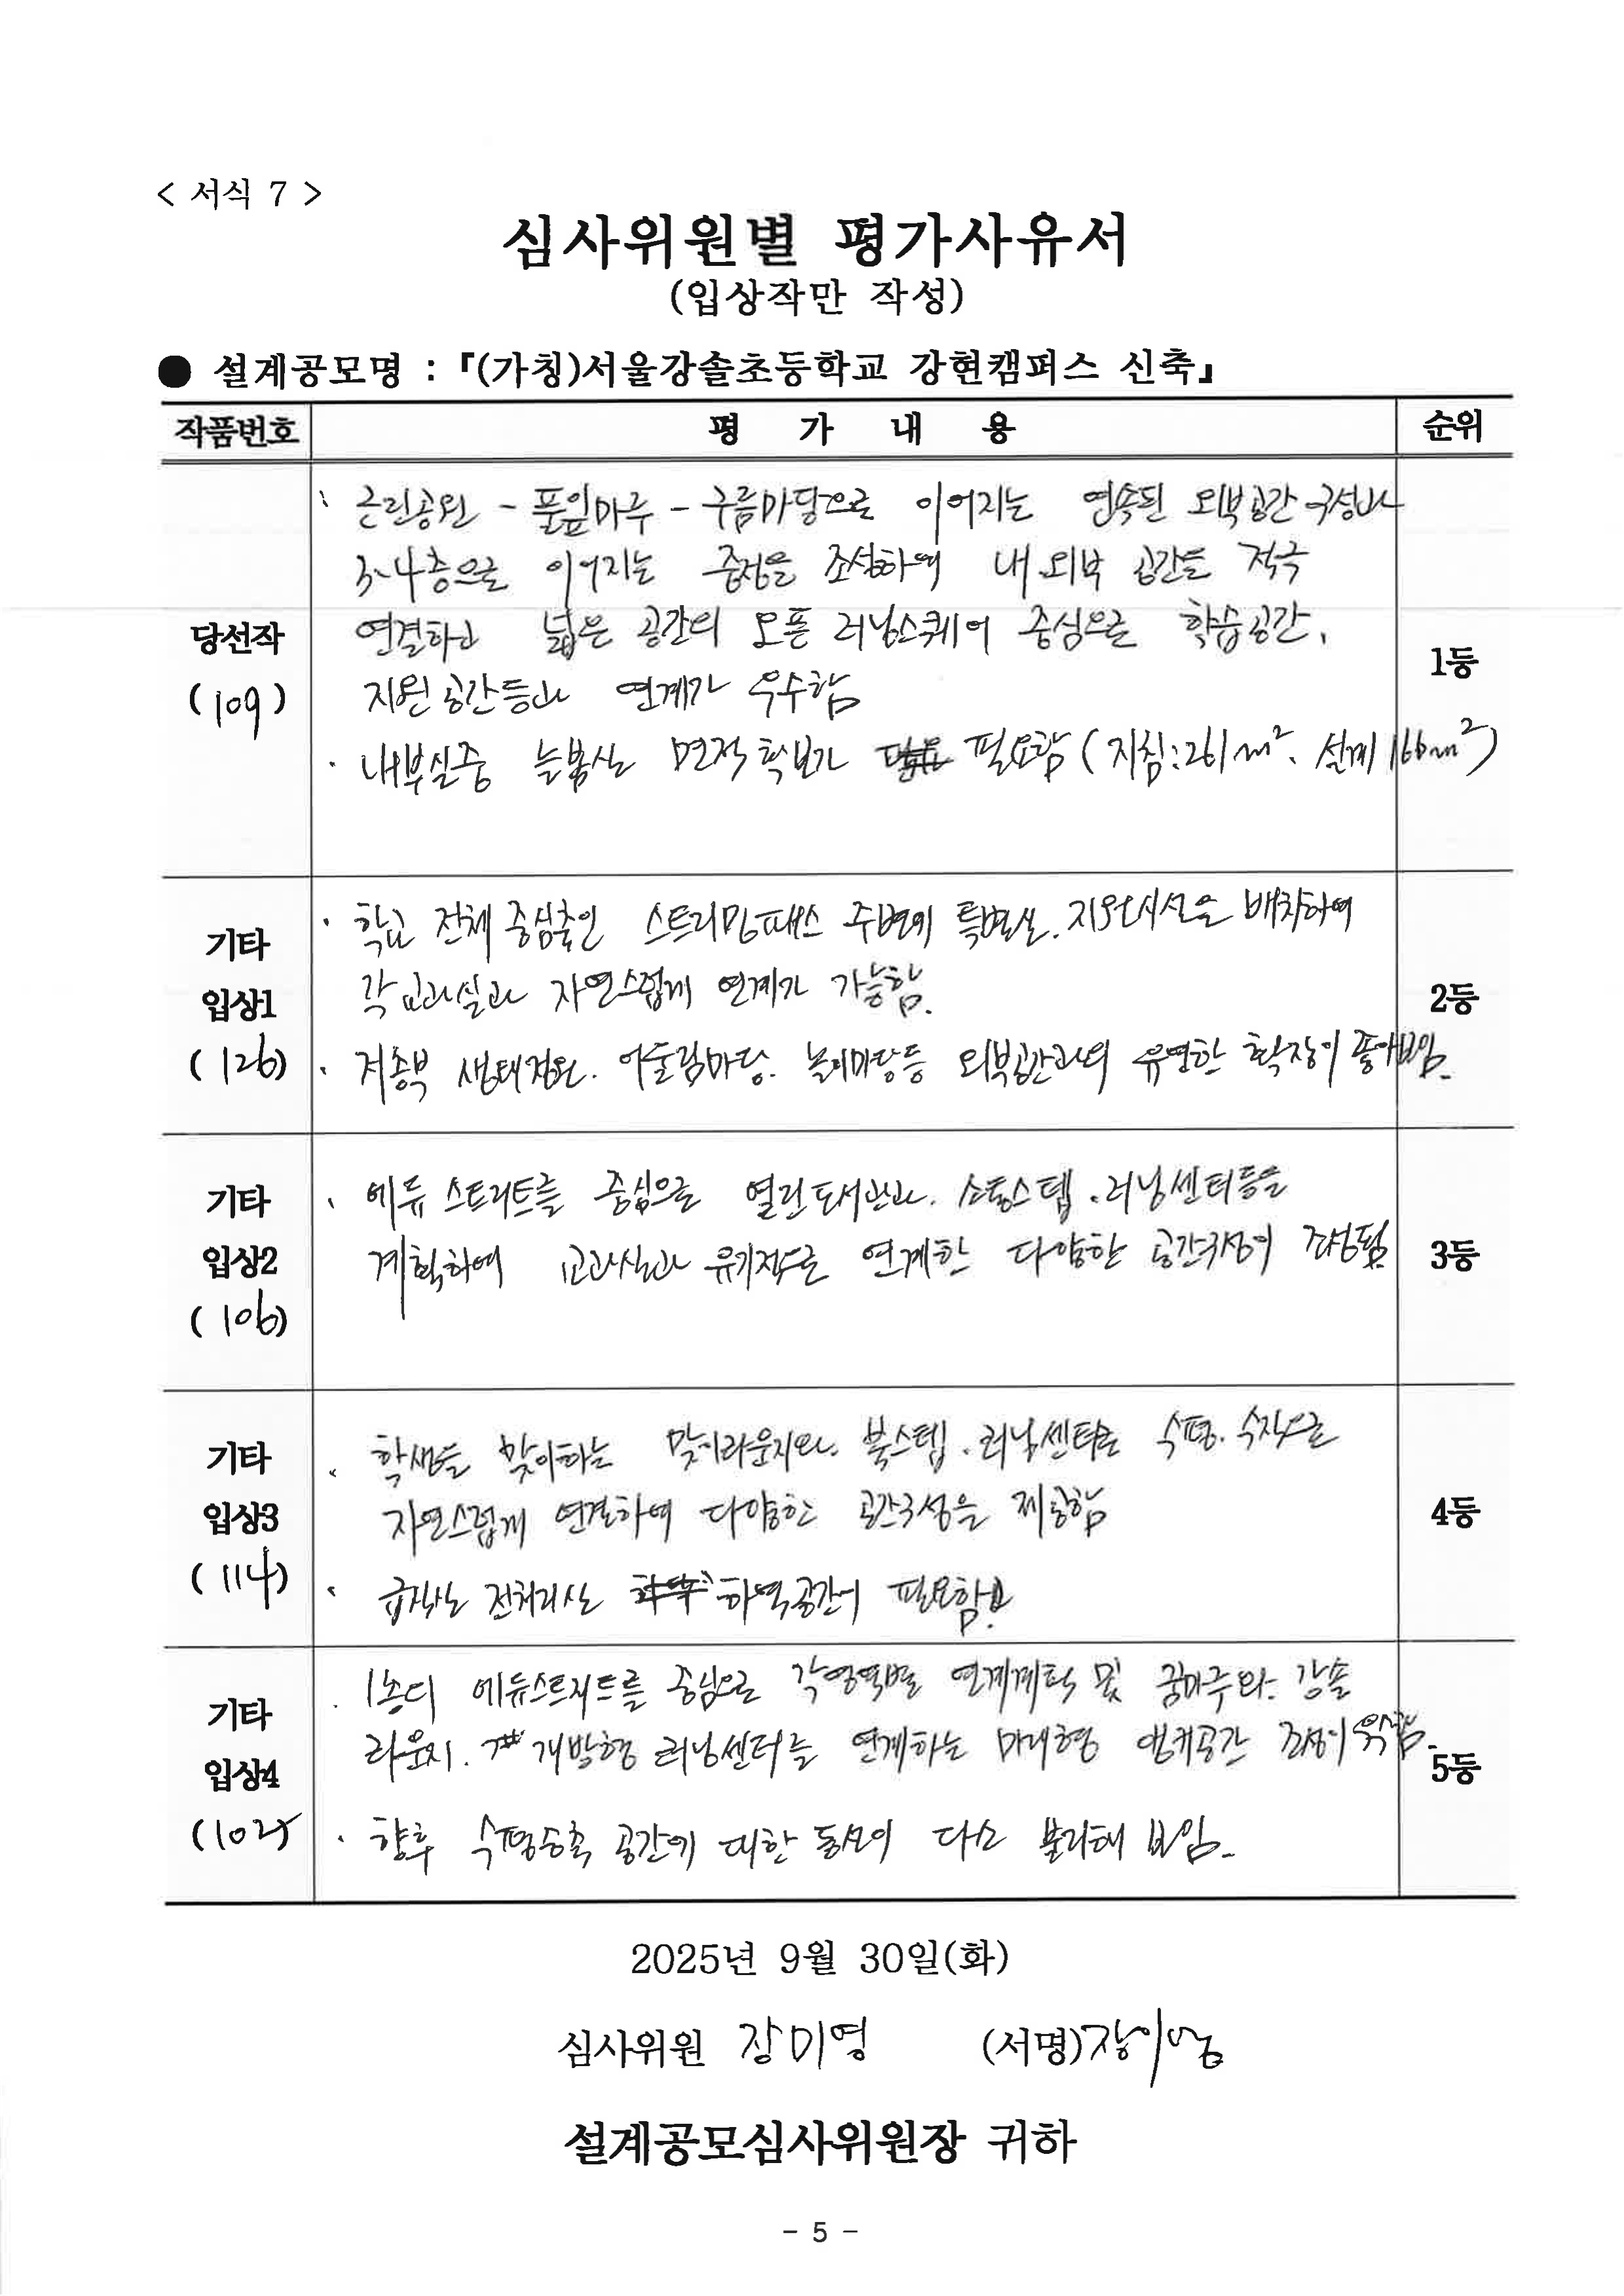 < 서식 7 >
심사위원별 평가사유서
(입상작만 작성)
● 설계공모명 : 『(가칭)서울강솔초등학교 강현캠퍼스 신축』
작품번호 평 가 내 용 순위
당선작
(109)
· 근린공원 - 풀잎마루 - 구름마당으로 이어지는 연속된 외부공간 구성과
3~4층으로 이어지는 중정을 조성하여 내.외부 공간을 적극
연결하고 넓은 공간의 오픈 러닝스퀘어 중심으로 학습공간,
지원공간등과 연계가 우수함
· 내부실중 늘봄실 면적확보가 필요함 (지침:261m². 설계 166m²)
1등
기타
입상1
(126)
· 학교 전체 중심축인 스트리밍패스 주변에 특별실. 지원시설을 배치하여
각 교과실과 자연스럽게 연계가 가능함.
· 저층부 생태정원. 어울림마당. 놀이마당등 외부공간과의 유연한 확장이 좋아보임.
2등
기타
입상2
(106)
· 에듀 스트리트를 중심으로 열린도서관과. 소통스텝. 러닝센터등을
계획하여 교과실과 유기적으로 연계한 다양한 공간구성이 조성됨
3등
기타
입상3
(114)
· 학생들 맞이하는 맞이라운지와. 북스텝. 러닝센터를 수평. 수직으로
자연스럽게 연결하여 다양한 공간구성을 제공함
· 급식실 전처리실 하역공간이 필요함.
4등
기타
입상4
(102)
· 1층의 에듀스트리트를 중심으로 각영역별 연계계획 및 꿈마루와. 강솔
라운지. 개방형 러닝센터를 연계하는 미래형 공간 조성이 우수함.
· 향후 수평증축 공간에 대한 동선이 다소 불리해 보임.
5등
2025년 9월 30일(화)
심사위원 장미영 (서명) 장미영
설계공모심사위원장 귀하
- 5 -